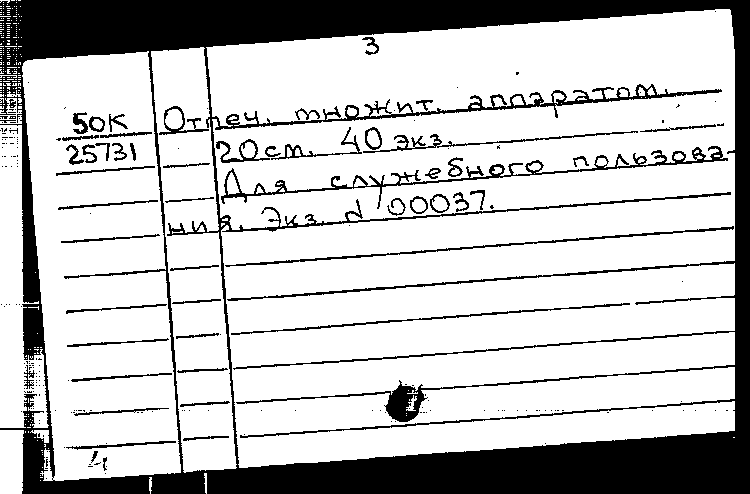 3
50К Отпеч. множит. аппаратом.
25731 20см. 40 экз.
Для служебного пользова-
ния. Экз. N 00037.
4